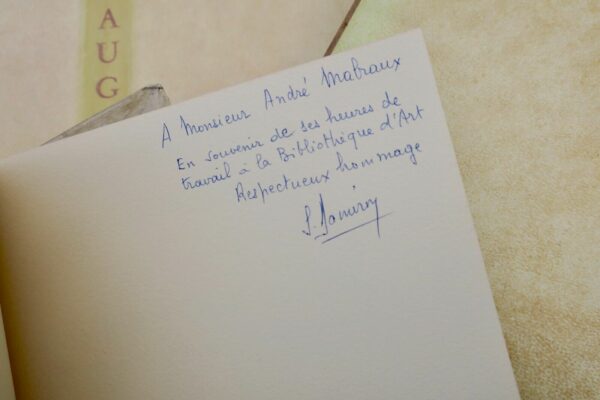 AUG
A Monsieur André Malraux
En souvenir de ses heures de
travail à la Bibliothèque d'Art
Respectueux hommage